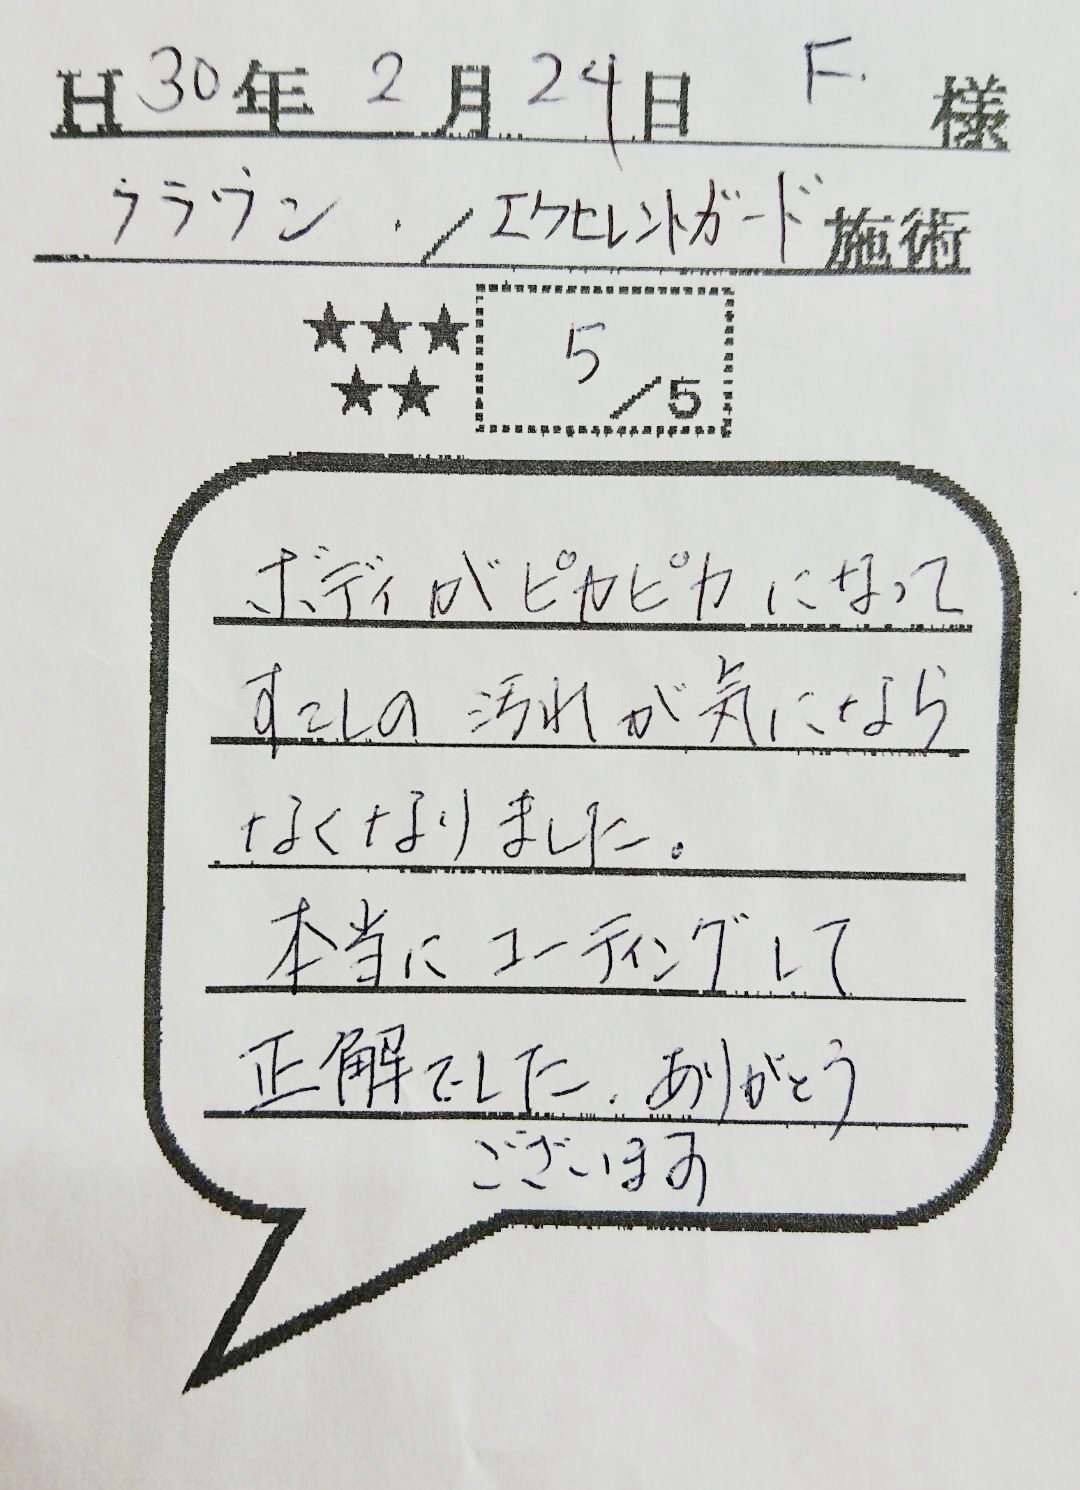 H30年 2月24日 F. 様
クラウン ・/エクセレントガード施術
★★★
★★
5/5
ボディがピカピカになって
すこしの 汚れが気になら
なくなりました。
本当に コーティングして
正解でした. ありがとう
ございます